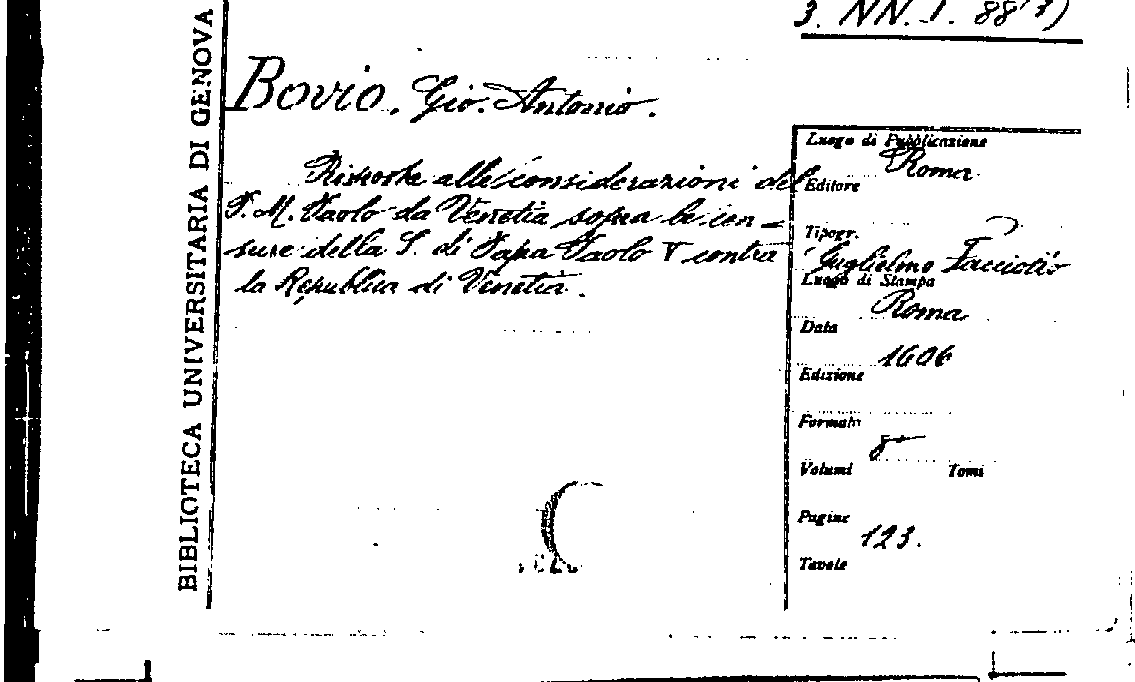 3. NN. I. 88(7)
BIBLIOTECA UNIVERSITARIA DI GENOVA
Bovio, Gio. Antonio.
Risposte alle considerazioni del
P. M. Paolo da Venetia sopra le cen-
sure della S. di Papa Paolo V contra
la Republica di Venetia.
Luogo di Pubblicazione
Roma
Editore
Tipogr.
Guglielmo Facciotto
Luogo di Stampa
Roma
Data
1606
Edizione
Formato
8°
Volumi Tomi
Pagine
123.
Tavole